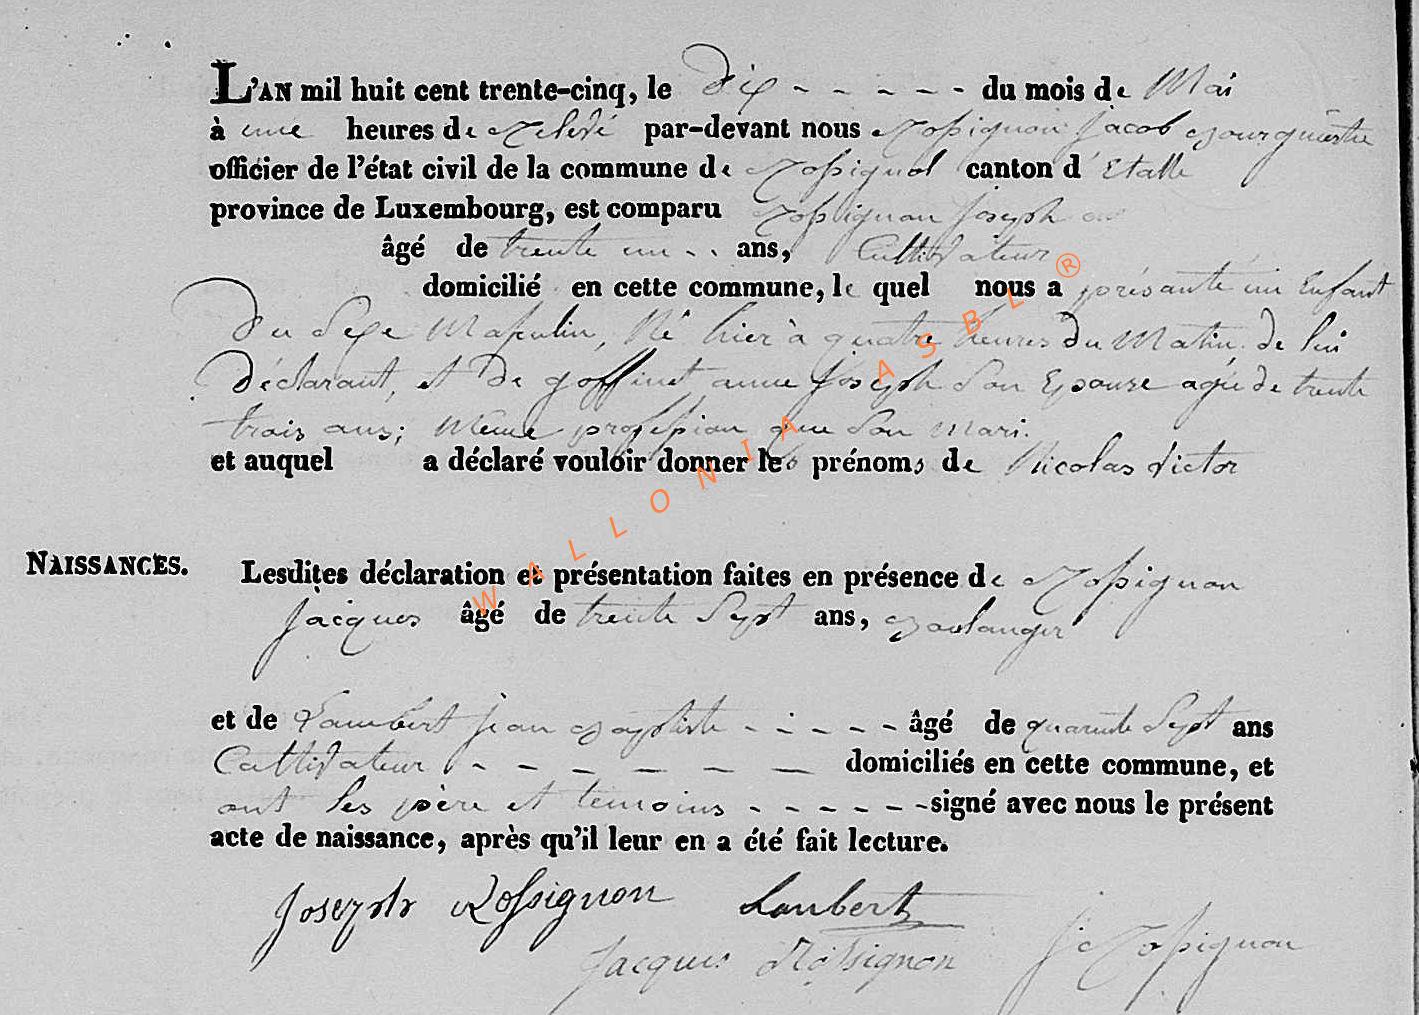 L'AN mil huit cent trente-cinq, le dix - - - - - du mois de Mai
à une heures de relevé par-devant nous Rossignon Jacob Bourgmestre
officier de l'état civil de la commune de Rossignol canton d'Etalle
province de Luxembourg, est comparu Rossignon Joseph
âgé de trente un - - ans, Cultivateur
domicilié en cette commune, le quel nous a présanté un Enfant
du Sexe Masculin, Né hier à quatre heures du Matin, de lui
déclarant, et de goffinet anne Joseph Son Epouse agée de trente
trois ans; Meme profession que Son Mari.
et auquel a déclaré vouloir donner les prénoms de Nicolas Victor
NAISSANCES.
Lesdites déclaration et présentation faites en présence de Rossignon
Jacques âgé de trente Sept ans, Boulanger
et de Lambert jean Baptiste - - - - - âgé de quarente Sept ans
Cultivateur - - - - - - domiciliés en cette commune, et
ont les père et temoins - - - - - - signé avec nous le présent
acte de naissance, après qu'il leur en a été fait lecture.
Joseph Rossignon Lambert
Jacques Rossignon J Rossignon
WALLONIA ASBL ®